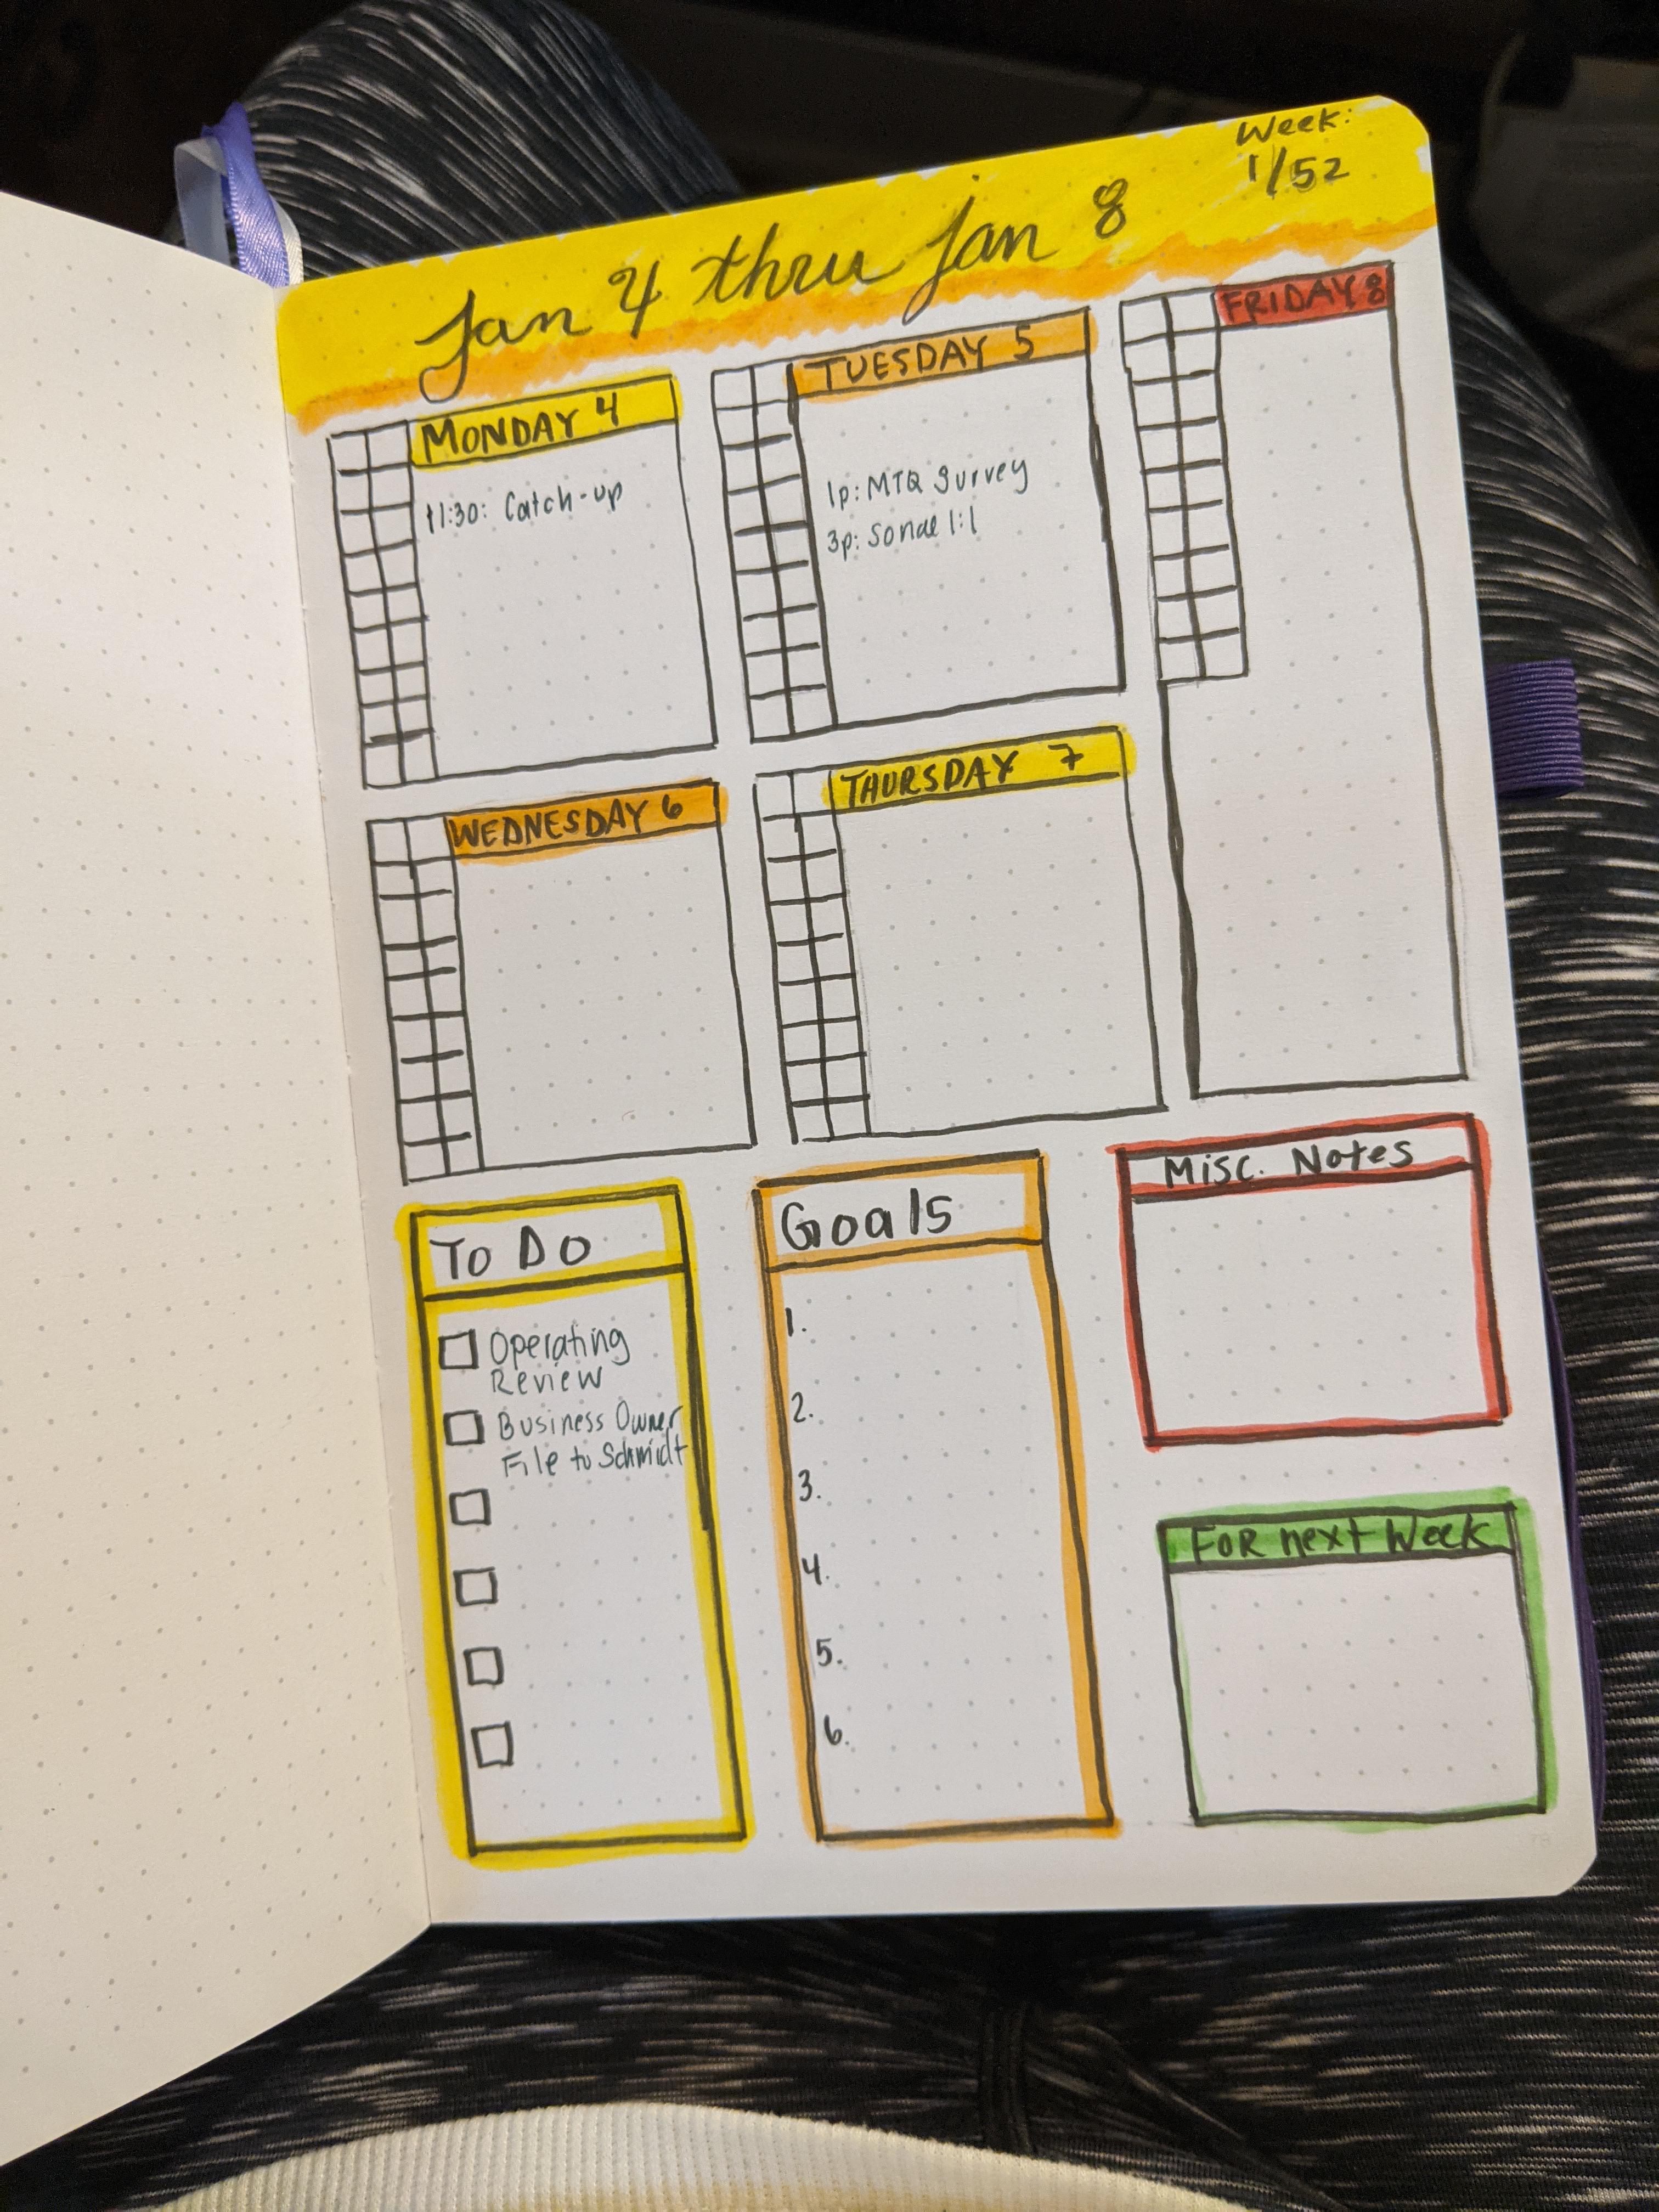 Week:
1/52
Jan 4 thru Jan 8
MONDAY 4
11:30: Catch-up
TUESDAY 5
1p: MTQ Survey
3p: Sonal 1:1
FRIDAY 8
WEDNESDAY 6
THURSDAY 7
To Do
Operating
Review
Business Owner
File to Schmidt
Goals
1.
2.
3.
4.
5.
6.
Misc. Notes
For next Week